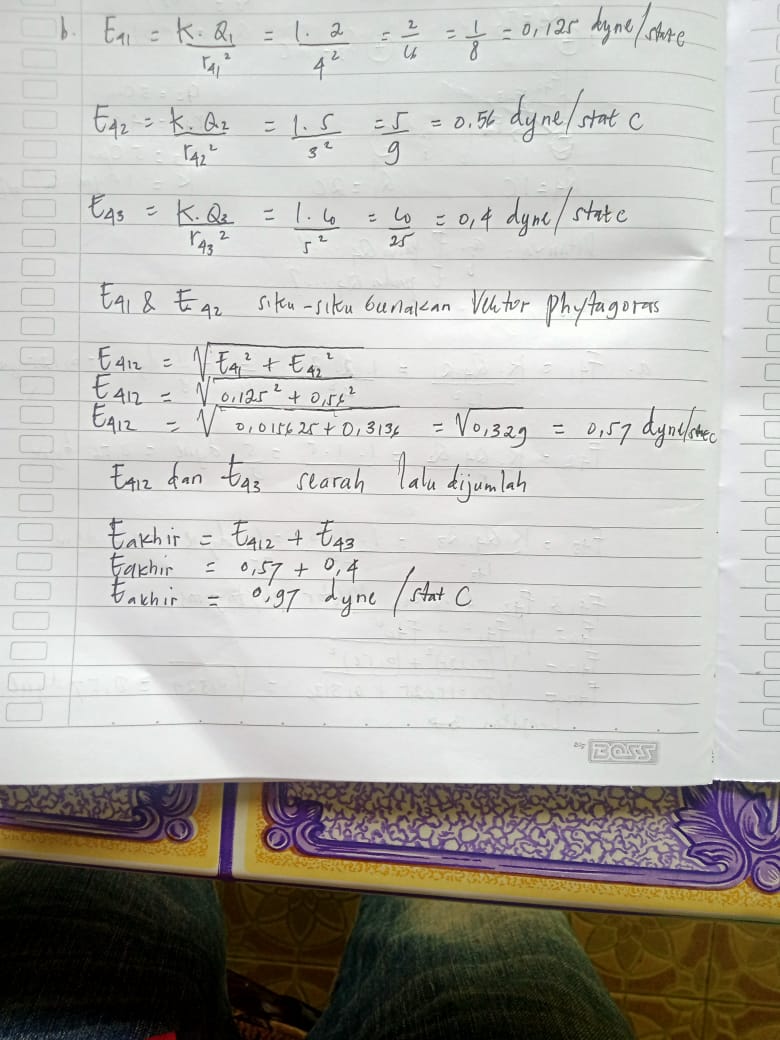 b. E41 = K. Q1 / r41² = 1. 2 / 4² = 2 / 16 = 1 / 8 = 0,125 dyne/stat C
E42 = K. Q2 / r42² = 1. 5 / 3² = 5 / 9 = 0.56 dyne/stat C
E43 = K. Q3 / r43² = 1. 10 / 5² = 10 / 25 = 0,4 dyne/stat C
E41 & E42 siku-siku gunakan Vektor phytagoras
E412 = √E41² + E42²
E412 = √0,125² + 0,56²
E412 = √0,015625 + 0,3136 = √0,329 = 0,57 dyne/stat C
E412 dan E43 searah lalu dijumlah
Eakhir = E412 + E43
Eakhir = 0,57 + 0,4
Eakhir = 0,97 dyne / stat C
BOSS